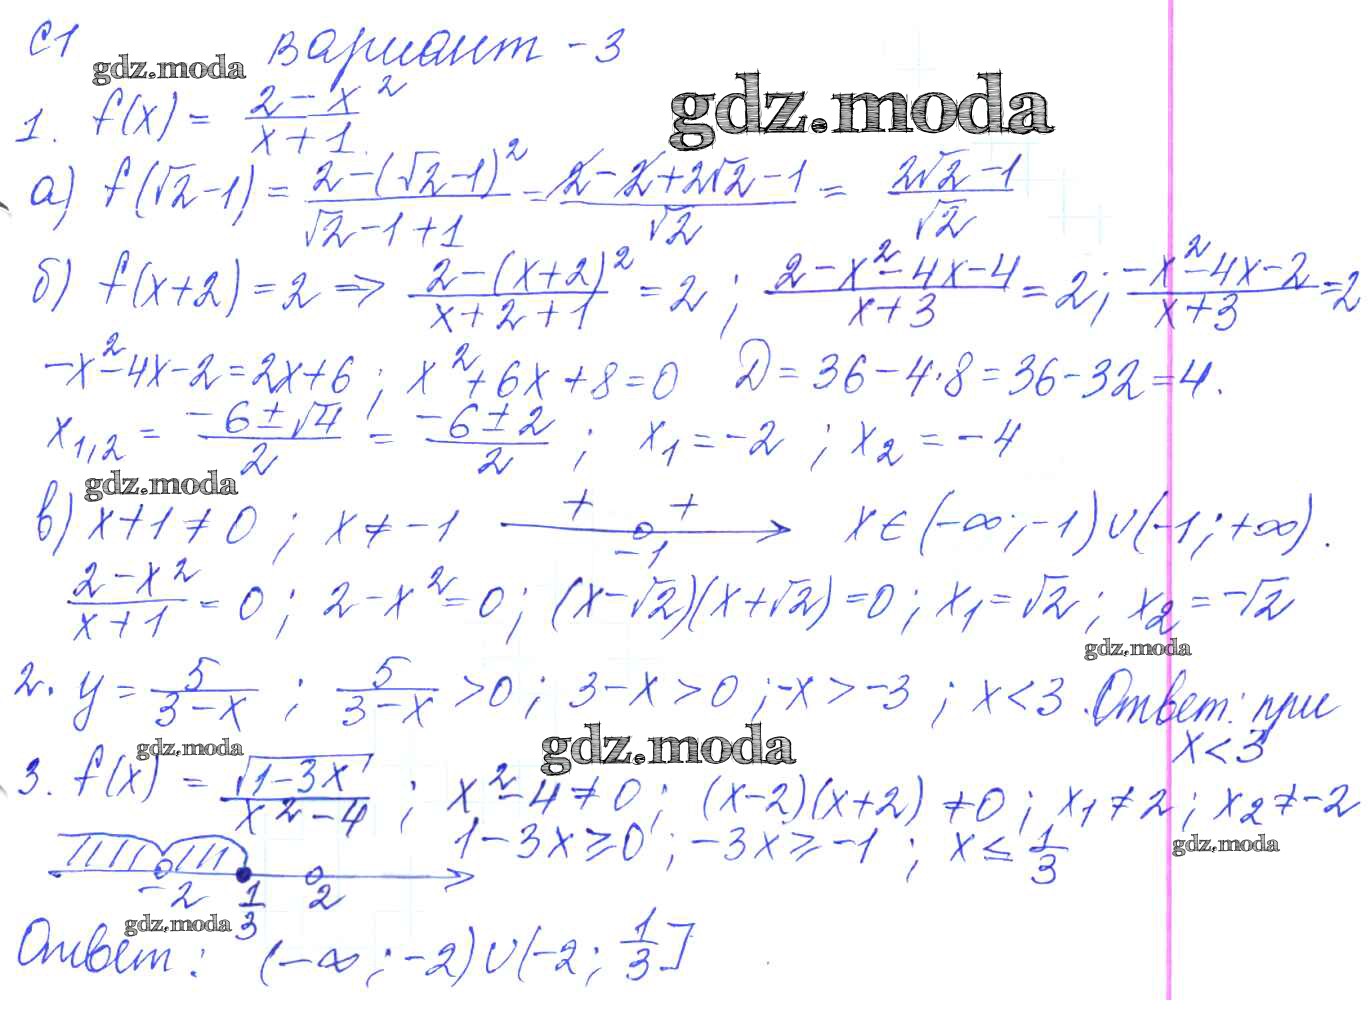 С1 Вариант - 3
gdz.moda
gdz.moda
1. f(x) = (2 - x²)/(x + 1)
а) f(√2 - 1) = (2 - (√2 - 1)²)/(√2 - 1 + 1) = (2 - 2 + 2√2 - 1)/√2 = (2√2 - 1)/√2
б) f(x+2) = 2 => (2 - (x+2)²)/(x + 2 + 1) = 2 ; (2 - x² - 4x - 4)/(x+3) = 2 ; (-x² - 4x - 2)/(x+3) = 2
-x² - 4x - 2 = 2x + 6 ; x² + 6x + 8 = 0 D = 36 - 4·8 = 36 - 32 = 4.
x₁,₂ = (-6 ± √4)/2 = (-6 ± 2)/2 ; x₁ = -2 ; x₂ = -4
gdz.moda
в) x + 1 ≠ 0 ; x ≠ -1 + + -1 x ∈ (-∞; -1) ∪ (-1; +∞).
(2 - x²)/(x + 1) = 0 ; 2 - x² = 0 ; (x - √2)(x + √2) = 0 ; x₁ = √2 ; x₂ = -√2
gdz.moda
2. y = 5/(3 - x) ; 5/(3 - x) > 0 ; 3 - x > 0 ; -x > -3 ; x < 3. Ответ: при
x < 3
gdz.moda
gdz.moda
3. f(x) = √(1 - 3x)/(x² - 4) ; x² - 4 ≠ 0 ; (x - 2)(x + 2) ≠ 0 ; x₁ ≠ 2 ; x₂ ≠ -2
1 - 3x ≥ 0 ; -3x ≥ -1 ; x ≤ 1/3
gdz.moda
-2 1/3 2
gdz.moda
Ответ: (-∞; -2) ∪ (-2; 1/3]